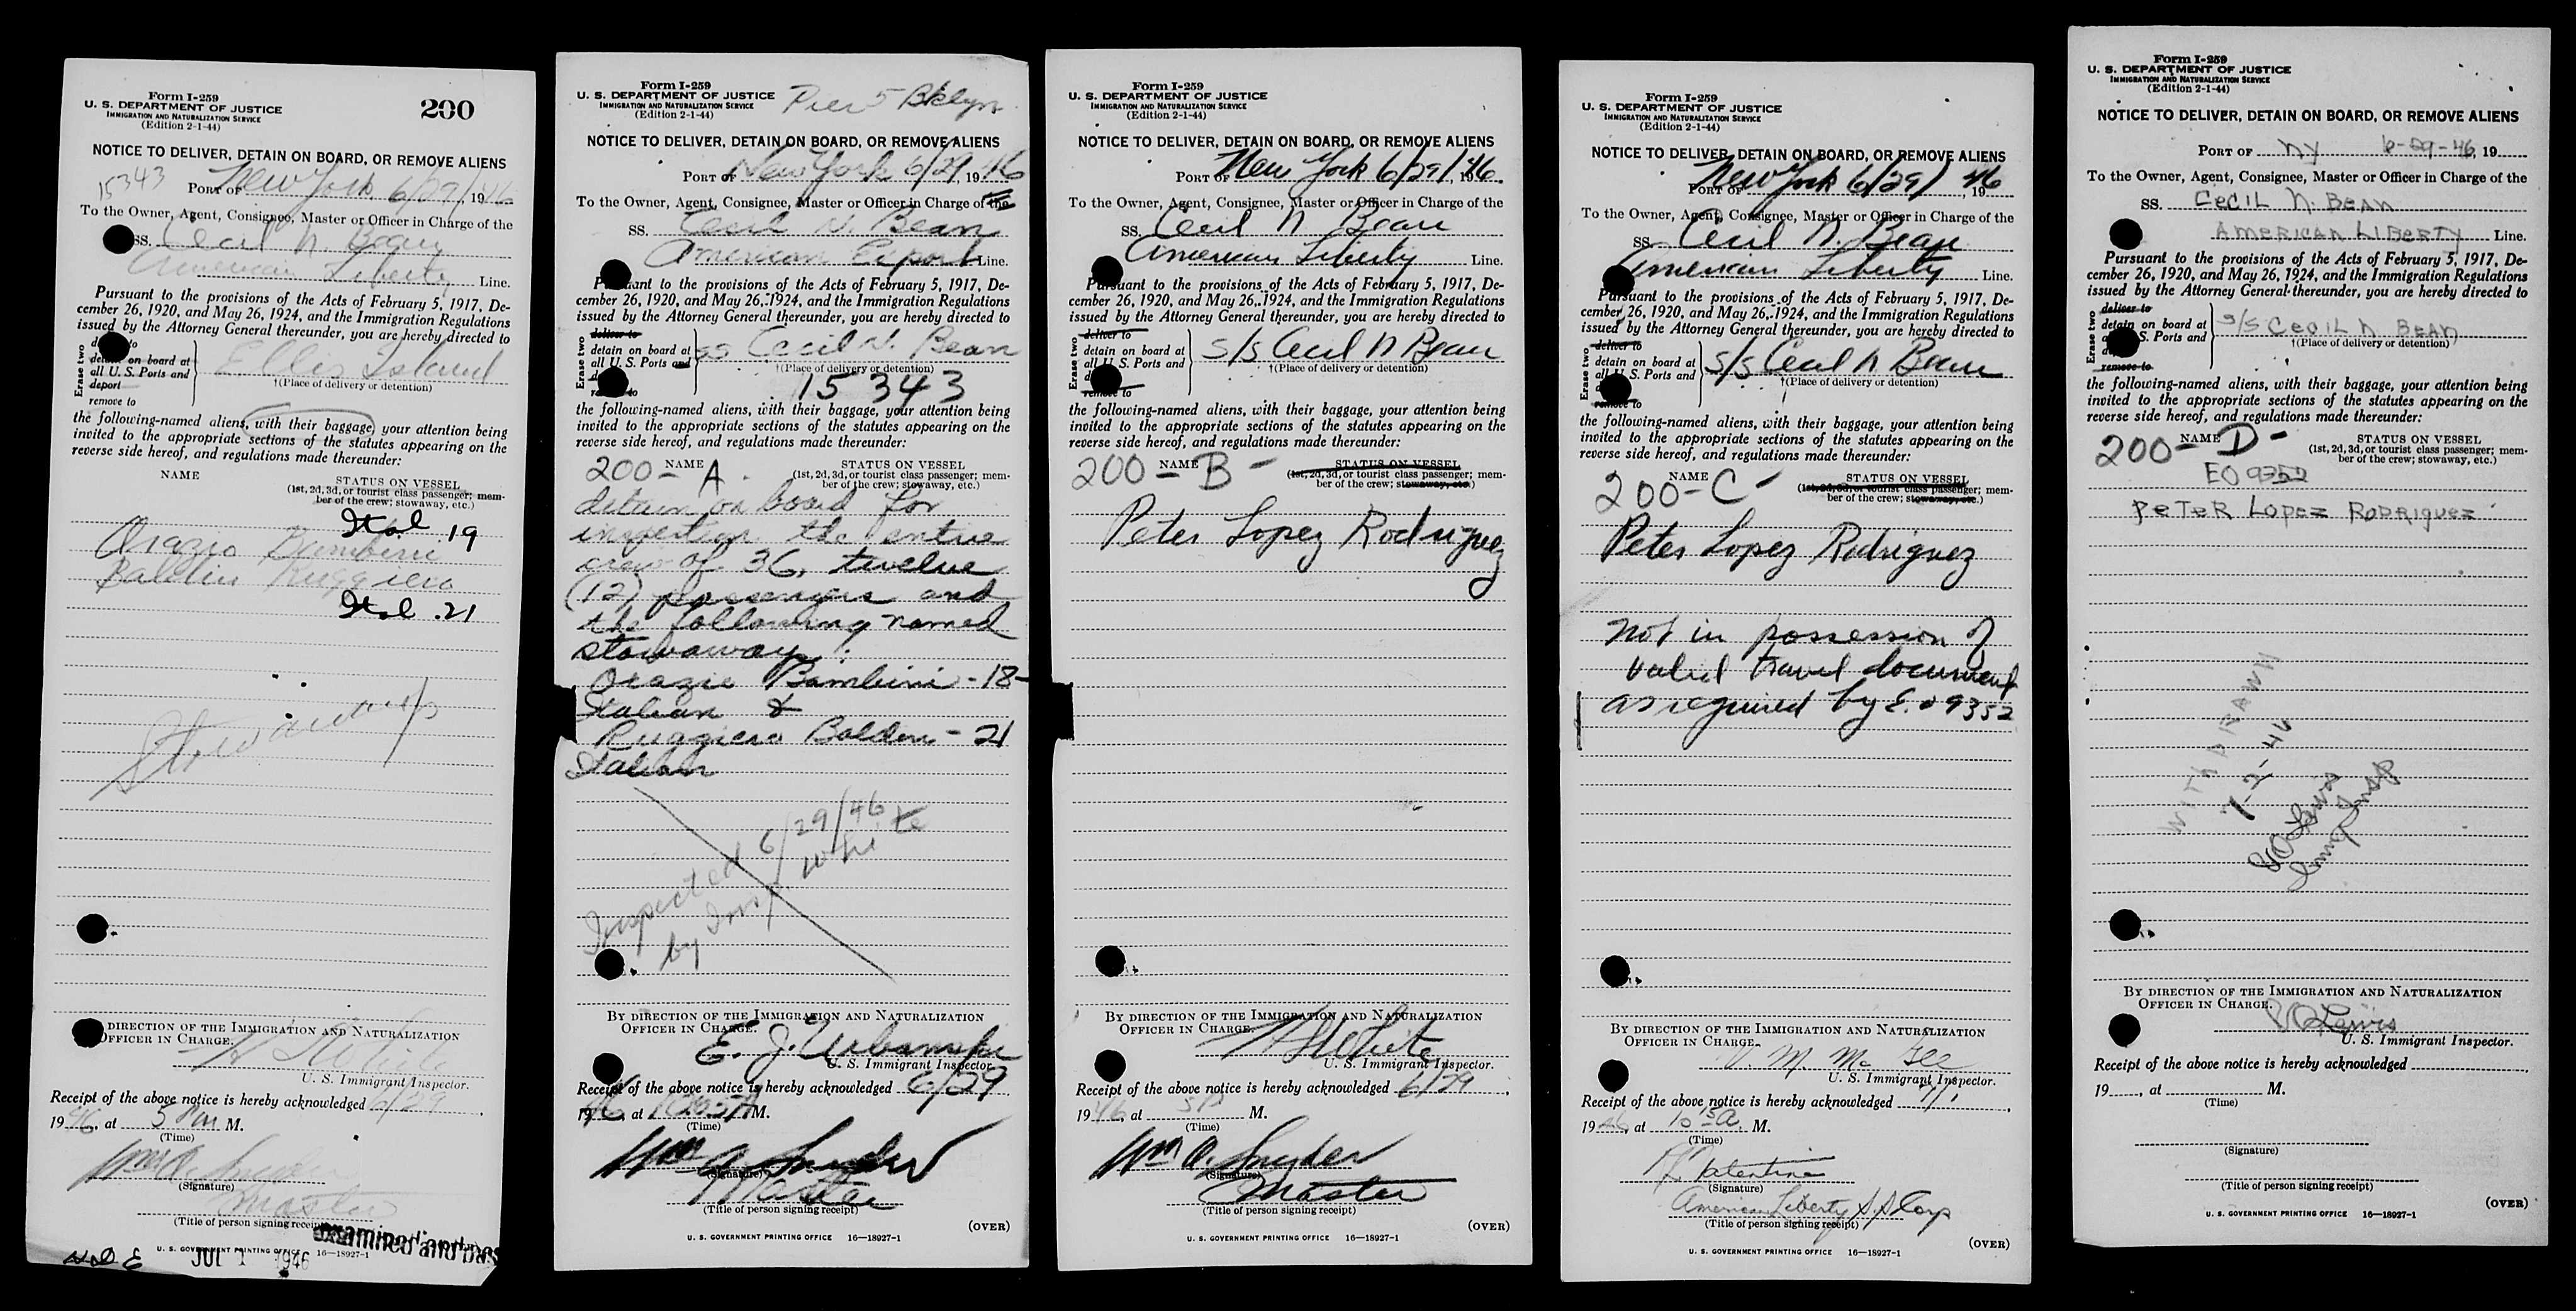 Form I-259
U. S. DEPARTMENT OF JUSTICE
IMMIGRATION AND NATURALIZATION SERVICE
(Edition 2-1-44)
200
NOTICE TO DELIVER, DETAIN ON BOARD, OR REMOVE ALIENS
15343
PORT OF New York 6/29/, 1946
To the Owner, Agent, Consignee, Master or Officer in Charge of the
SS. Cecil N. Bean
American Liberty Line.
Pursuant to the provisions of the Acts of February 5, 1917, De-
cember 26, 1920, and May 26, 1924, and the Immigration Regulations
issued by the Attorney General thereunder, you are hereby directed to
Erase two
to
on board at
all U. S. Ports and
deport
remove to
Ellis Island
†(Place of delivery or detention)
the following-named aliens, with their baggage, your attention being
invited to the appropriate sections of the statutes appearing on the
reverse side hereof, and regulations made thereunder:
NAME
STATUS ON VESSEL
(1st, 2d, 3d, or tourist class passenger; mem-
ber of the crew; stowaway, etc.)
Ital. 19
Orazio Bambini
Baldin Ruggiero
Ital. 21
Stowaways
DIRECTION OF THE IMMIGRATION AND NATURALIZATION
OFFICER IN CHARGE.
White
U. S. Immigrant Inspector.
Receipt of the above notice is hereby acknowledged 6/29,
1946, at 5 PM M.
(Time)
Wm A. Snyder
(Signature)
Master
(Title of person signing receipt)
examined and pas
U. S. GOVERNMENT PRINTING OFFICE 16—18927-1
JUL 1 1946
Form I-259
U. S. DEPARTMENT OF JUSTICE
IMMIGRATION AND NATURALIZATION SERVICE
(Edition 2-1-44)
Pier 5 Bklyn
NOTICE TO DELIVER, DETAIN ON BOARD, OR REMOVE ALIENS
PORT OF New York 6/29, 1946
To the Owner, Agent, Consignee, Master or Officer in Charge of the
SS. Cecil N. Bean
American Export Line.
Pursuant to the provisions of the Acts of February 5, 1917, De-
cember 26, 1920, and May 26, 1924, and the Immigration Regulations
issued by the Attorney General thereunder, you are hereby directed to
Erase two
deliver to
detain on board at
all U. S. Ports and
remove to
SS Cecil N. Bean
†(Place of delivery or detention)
15343
the following-named aliens, with their baggage, your attention being
invited to the appropriate sections of the statutes appearing on the
reverse side hereof, and regulations made thereunder:
200 - NAME A.
STATUS ON VESSEL
(1st, 2d, 3d, or tourist class passenger; mem-
ber of the crew; stowaway, etc.)
detain on board for
inspection the entire
crew of 36, twelve
(12) passengers and
the following named
stowaway:
Orazio Bambini - 18 -
Italian &
Ruggiero Baldin - 21
Italian
Inspected 6/29/46
by Insp White
BY DIRECTION OF THE IMMIGRATION AND NATURALIZATION
OFFICER IN CHARGE.
E. J. Urbanski
U. S. Immigrant Inspector.
Receipt of the above notice is hereby acknowledged 6/29,
1946, at M.
(Time)
Wm A. Snyder
(Signature)
Master
(Title of person signing receipt)
(OVER)
U. S. GOVERNMENT PRINTING OFFICE 16—18927-1
Form I-259
U. S. DEPARTMENT OF JUSTICE
IMMIGRATION AND NATURALIZATION SERVICE
(Edition 2-1-44)
NOTICE TO DELIVER, DETAIN ON BOARD, OR REMOVE ALIENS
PORT OF New York 6/29/, 1946.
To the Owner, Agent, Consignee, Master or Officer in Charge of the
SS. Cecil N Bean
American Liberty Line.
Pursuant to the provisions of the Acts of February 5, 1917, De-
cember 26, 1920, and May 26, 1924, and the Immigration Regulations
issued by the Attorney General thereunder, you are hereby directed to
Erase two
deliver to
detain on board at
all U. S. Ports and
remove to
S/S Cecil N Bean
†(Place of delivery or detention)
the following-named aliens, with their baggage, your attention being
invited to the appropriate sections of the statutes appearing on the
reverse side hereof, and regulations made thereunder:
200 - NAME B -
STATUS ON VESSEL
(1st, 2d, 3d, or tourist class passenger; mem-
ber of the crew; stowaway, etc.)
Peter Lopez Rodriguez
BY DIRECTION OF THE IMMIGRATION AND NATURALIZATION
OFFICER IN CHARGE.
White
U. S. Immigrant Inspector.
Receipt of the above notice is hereby acknowledged 6/29,
1946, at 5P M.
(Time)
Wm A. Snyder
(Signature)
Master
(Title of person signing receipt)
(OVER)
U. S. GOVERNMENT PRINTING OFFICE 16—18927-1
Form I-259
U. S. DEPARTMENT OF JUSTICE
IMMIGRATION AND NATURALIZATION SERVICE
(Edition 2-1-44)
NOTICE TO DELIVER, DETAIN ON BOARD, OR REMOVE ALIENS
PORT OF New York 6/29/, 1946
To the Owner, Agent, Consignee, Master or Officer in Charge of the
SS. Cecil N. Bean
American Liberty Line.
Pursuant to the provisions of the Acts of February 5, 1917, De-
cember 26, 1920, and May 26, 1924, and the Immigration Regulations
issued by the Attorney General thereunder, you are hereby directed to
Erase two
deliver to
detain on board at
all U. S. Ports and
remove to
S/S Cecil N Bean
†(Place of delivery or detention)
the following-named aliens, with their baggage, your attention being
invited to the appropriate sections of the statutes appearing on the
reverse side hereof, and regulations made thereunder:
200 - NAME C -
STATUS ON VESSEL
(1st, 2d, 3d, or tourist class passenger; mem-
ber of the crew; stowaway, etc.)
Peter Lopez Rodriguez
not in possession of
valid travel document
as required by E.O 9352
BY DIRECTION OF THE IMMIGRATION AND NATURALIZATION
OFFICER IN CHARGE.
M. McGee
U. S. Immigrant Inspector.
Receipt of the above notice is hereby acknowledged 7/1,
1946, at 10 15 A. M.
(Time)
Valentine
(Signature)
American Liberty S.S. Corp
(Title of person signing receipt)
(OVER)
U. S. GOVERNMENT PRINTING OFFICE 16—18927-1
Form I-259
U. S. DEPARTMENT OF JUSTICE
IMMIGRATION AND NATURALIZATION SERVICE
(Edition 2-1-44)
NOTICE TO DELIVER, DETAIN ON BOARD, OR REMOVE ALIENS
PORT OF NY 6-29-46, 19
To the Owner, Agent, Consignee, Master or Officer in Charge of the
SS. CECIL N. BEAN
AMERICAN LIBERTY Line.
Pursuant to the provisions of the Acts of February 5, 1917, De-
cember 26, 1920, and May 26, 1924, and the Immigration Regulations
issued by the Attorney General thereunder, you are hereby directed to
Erase two
deliver to
detain on board at
S. Ports and
remove to
S/S CECIL N BEAN
†(Place of delivery or detention)
the following-named aliens, with their baggage, your attention being
invited to the appropriate sections of the statutes appearing on the
reverse side hereof, and regulations made thereunder:
200 - NAME D -
STATUS ON VESSEL
(1st, 2d, 3d, or tourist class passenger; mem-
ber of the crew; stowaway, etc.)
EO 9352
PETER LOPEZ RODRIGUEZ
WITHDRAWN
7-2-46
Lewis
Immig Insp
BY DIRECTION OF THE IMMIGRATION AND NATURALIZATION
OFFICER IN CHARGE.
Lewis
U. S. Immigrant Inspector.
Receipt of the above notice is hereby acknowledged
19, at M.
(Time)
(Signature)
(Title of person signing receipt)
(OVER)
U. S. GOVERNMENT PRINTING OFFICE 16—18927-1